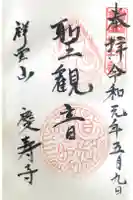 奉拝
令和元年五月九日
聖観音
祥雲山
慶寿寺